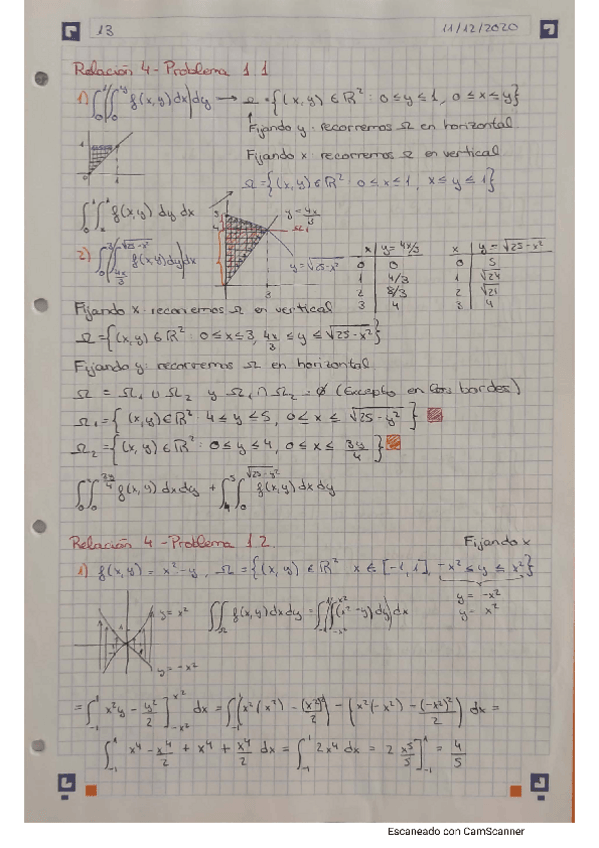 13 11/12/2020
Relación 4 - Problema 1.1
1) ∫₀¹(∫₀^y f(x,y) dx)dy → Ω = {(x,y) ∈ ℝ² : 0 ≤ y ≤ 1, 0 ≤ x ≤ y}
Fijando y: recorremos Ω en horizontal.
Fijando x: recorremos Ω en vertical
Ω = {(x,y) ∈ ℝ² : 0 ≤ x ≤ 1, x ≤ y ≤ 1}
∫₀¹∫ₓ¹ f(x,y) dy dx
y = 4x/3
Ω₁
y = √25-x²
3
2) ∫₀³(∫_{4x/3}^{√25-x²} f(x,y)dy)dx
x | y = 4x/3
0 | 0
1 | 4/3
2 | 8/3
3 | 4
x | y = √25-x²
0 | 5
1 | √24
2 | √21
3 | 4
Fijando x: recorremos Ω en vertical
Ω = {(x,y) ∈ ℝ² : 0 ≤ x ≤ 3, 4x/3 ≤ y ≤ √25-x²}
Fijando y: recorremos Ω en horizontal
Ω = Ω₁ ∪ Ω₂ y Ω₁ ∩ Ω₂ = ∅ (Excepto en los bordes)
Ω₁ = {(x,y) ∈ ℝ² : 4 ≤ y ≤ 5, 0 ≤ x ≤ √25-y²}
Ω₂ = {(x,y) ∈ ℝ² : 0 ≤ y ≤ 4, 0 ≤ x ≤ 3y/4}
∫₀⁴∫₀^{3y/4} f(x,y) dx dy + ∫₄⁵∫₀^{√25-y²} f(x,y) dx dy
Relación 4 - Problema 1.2
Fijando x
1) f(x,y) = x²-y, Ω = {(x,y) ∈ ℝ² : x ∈ [-1,1], -x² ≤ y ≤ x²}
y = -x²
y = x²
y = x²
y = -x²
∫∫_Ω f(x,y) dx dy = ∫₋₁¹(∫_{-x²}^{x²} (x²-y) dy)dx
= ∫₋₁¹ x²y - y²/2 ]_{-x²}^{x²} dx = ∫₋₁¹ (x²(x²) - (x²)²/2 - (x²(-x²) - (-x²)²/2) dx =
∫₋₁¹ x⁴ - x⁴/2 + x⁴ + x⁴/2 dx = ∫₋₁¹ 2x⁴ dx = 2 x⁵/5 ]₋₁¹ = 4/5
Escaneado con CamScanner